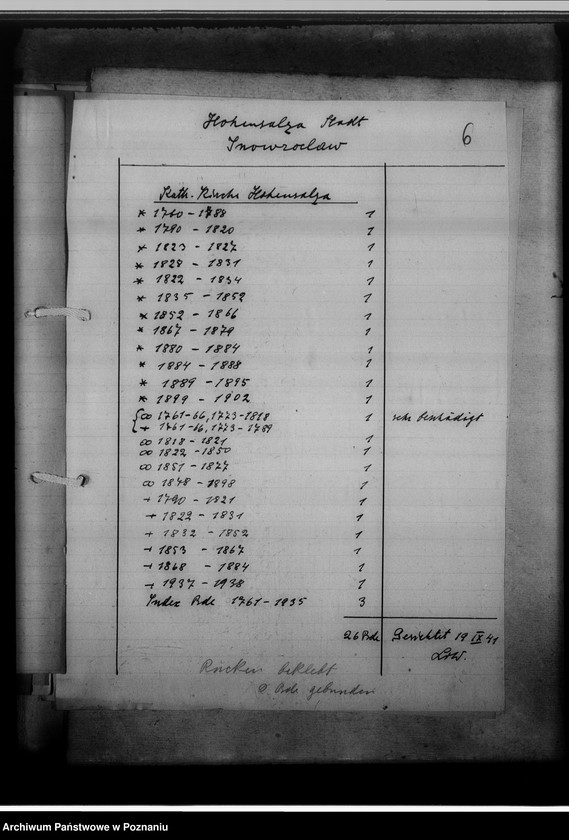 Hohensalza Stadt
Inowrocław
6
Kath. Kirche Hohensalza
* 1760 - 1788 1
* 1790 - 1820 1
* 1823 - 1827 1
* 1828 - 1831 1
* 1822 - 1834 1
* 1835 - 1852 1
* 1852 - 1866 1
* 1867 - 1879 1
* 1880 - 1884 1
* 1884 - 1888 1
* 1889 - 1895 1
* 1899 - 1902 1
∞ 1761-66, 1773-1818 1 sehr beschädigt
+ 1761-16, 1773 - 1789
∞ 1818 - 1821 1
∞ 1822 - 1850 1
∞ 1851 - 1877 1
∞ 1878 - 1898 1
+ 1790 - 1821 1
+ 1822 - 1831 1
+ 1832 - 1852 1
+ 1853 - 1867 1
+ 1868 - 1884 1
+ 1937 - 1938 1
Index Bde 1761 - 1935 3
26 Bde Gesichtet 19 IX 41
Rücken beklebt
Bde gebunden
Archiwum Państwowe w Poznaniu